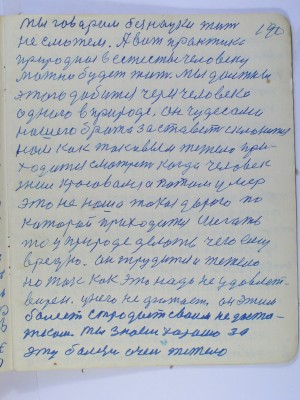 190
мы говорим без науки жить
не сможем. А вот практика
природная в естестве человеку
можно будет жит. мы должны
этого добится через человека
одного в природе. он чудесами
нашего брата заставет
нам как таковым тяжело при-
ходится смотрет когда человек
жил а потом умер
это не наша такая дорога по
которой приходится шегать
то в природе делать чего ему
вредно. он трудится тяжело
но так как это надо не удовлет-
варен. у него не достает, он этим
болеет страдает своим недоста-
тком. мы знаем хорошо за
эту болезн очен тяжело